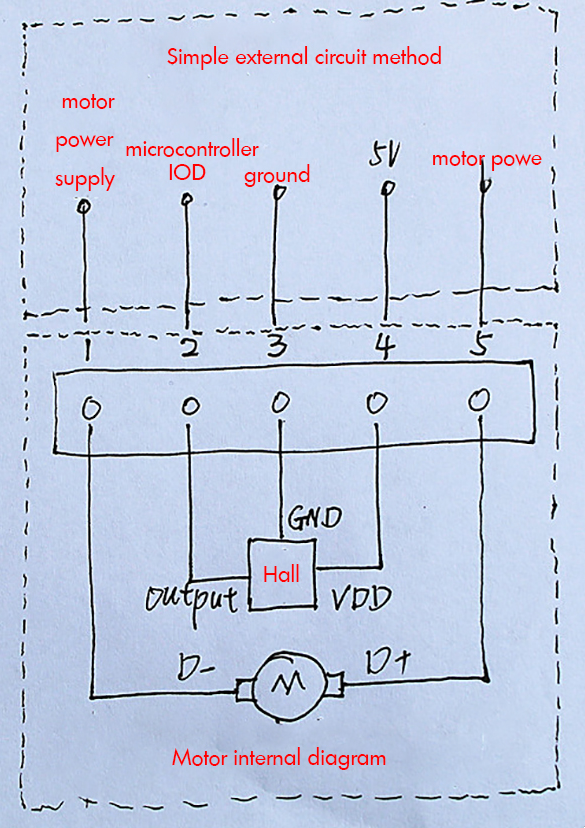 Simple external circuit method
motor
power
supply
microcontroller
IOD
ground
5V
motor powe
1 2 3 4 5
GND
Hall
output
VDD
D-
D+
M
Motor internal diagram